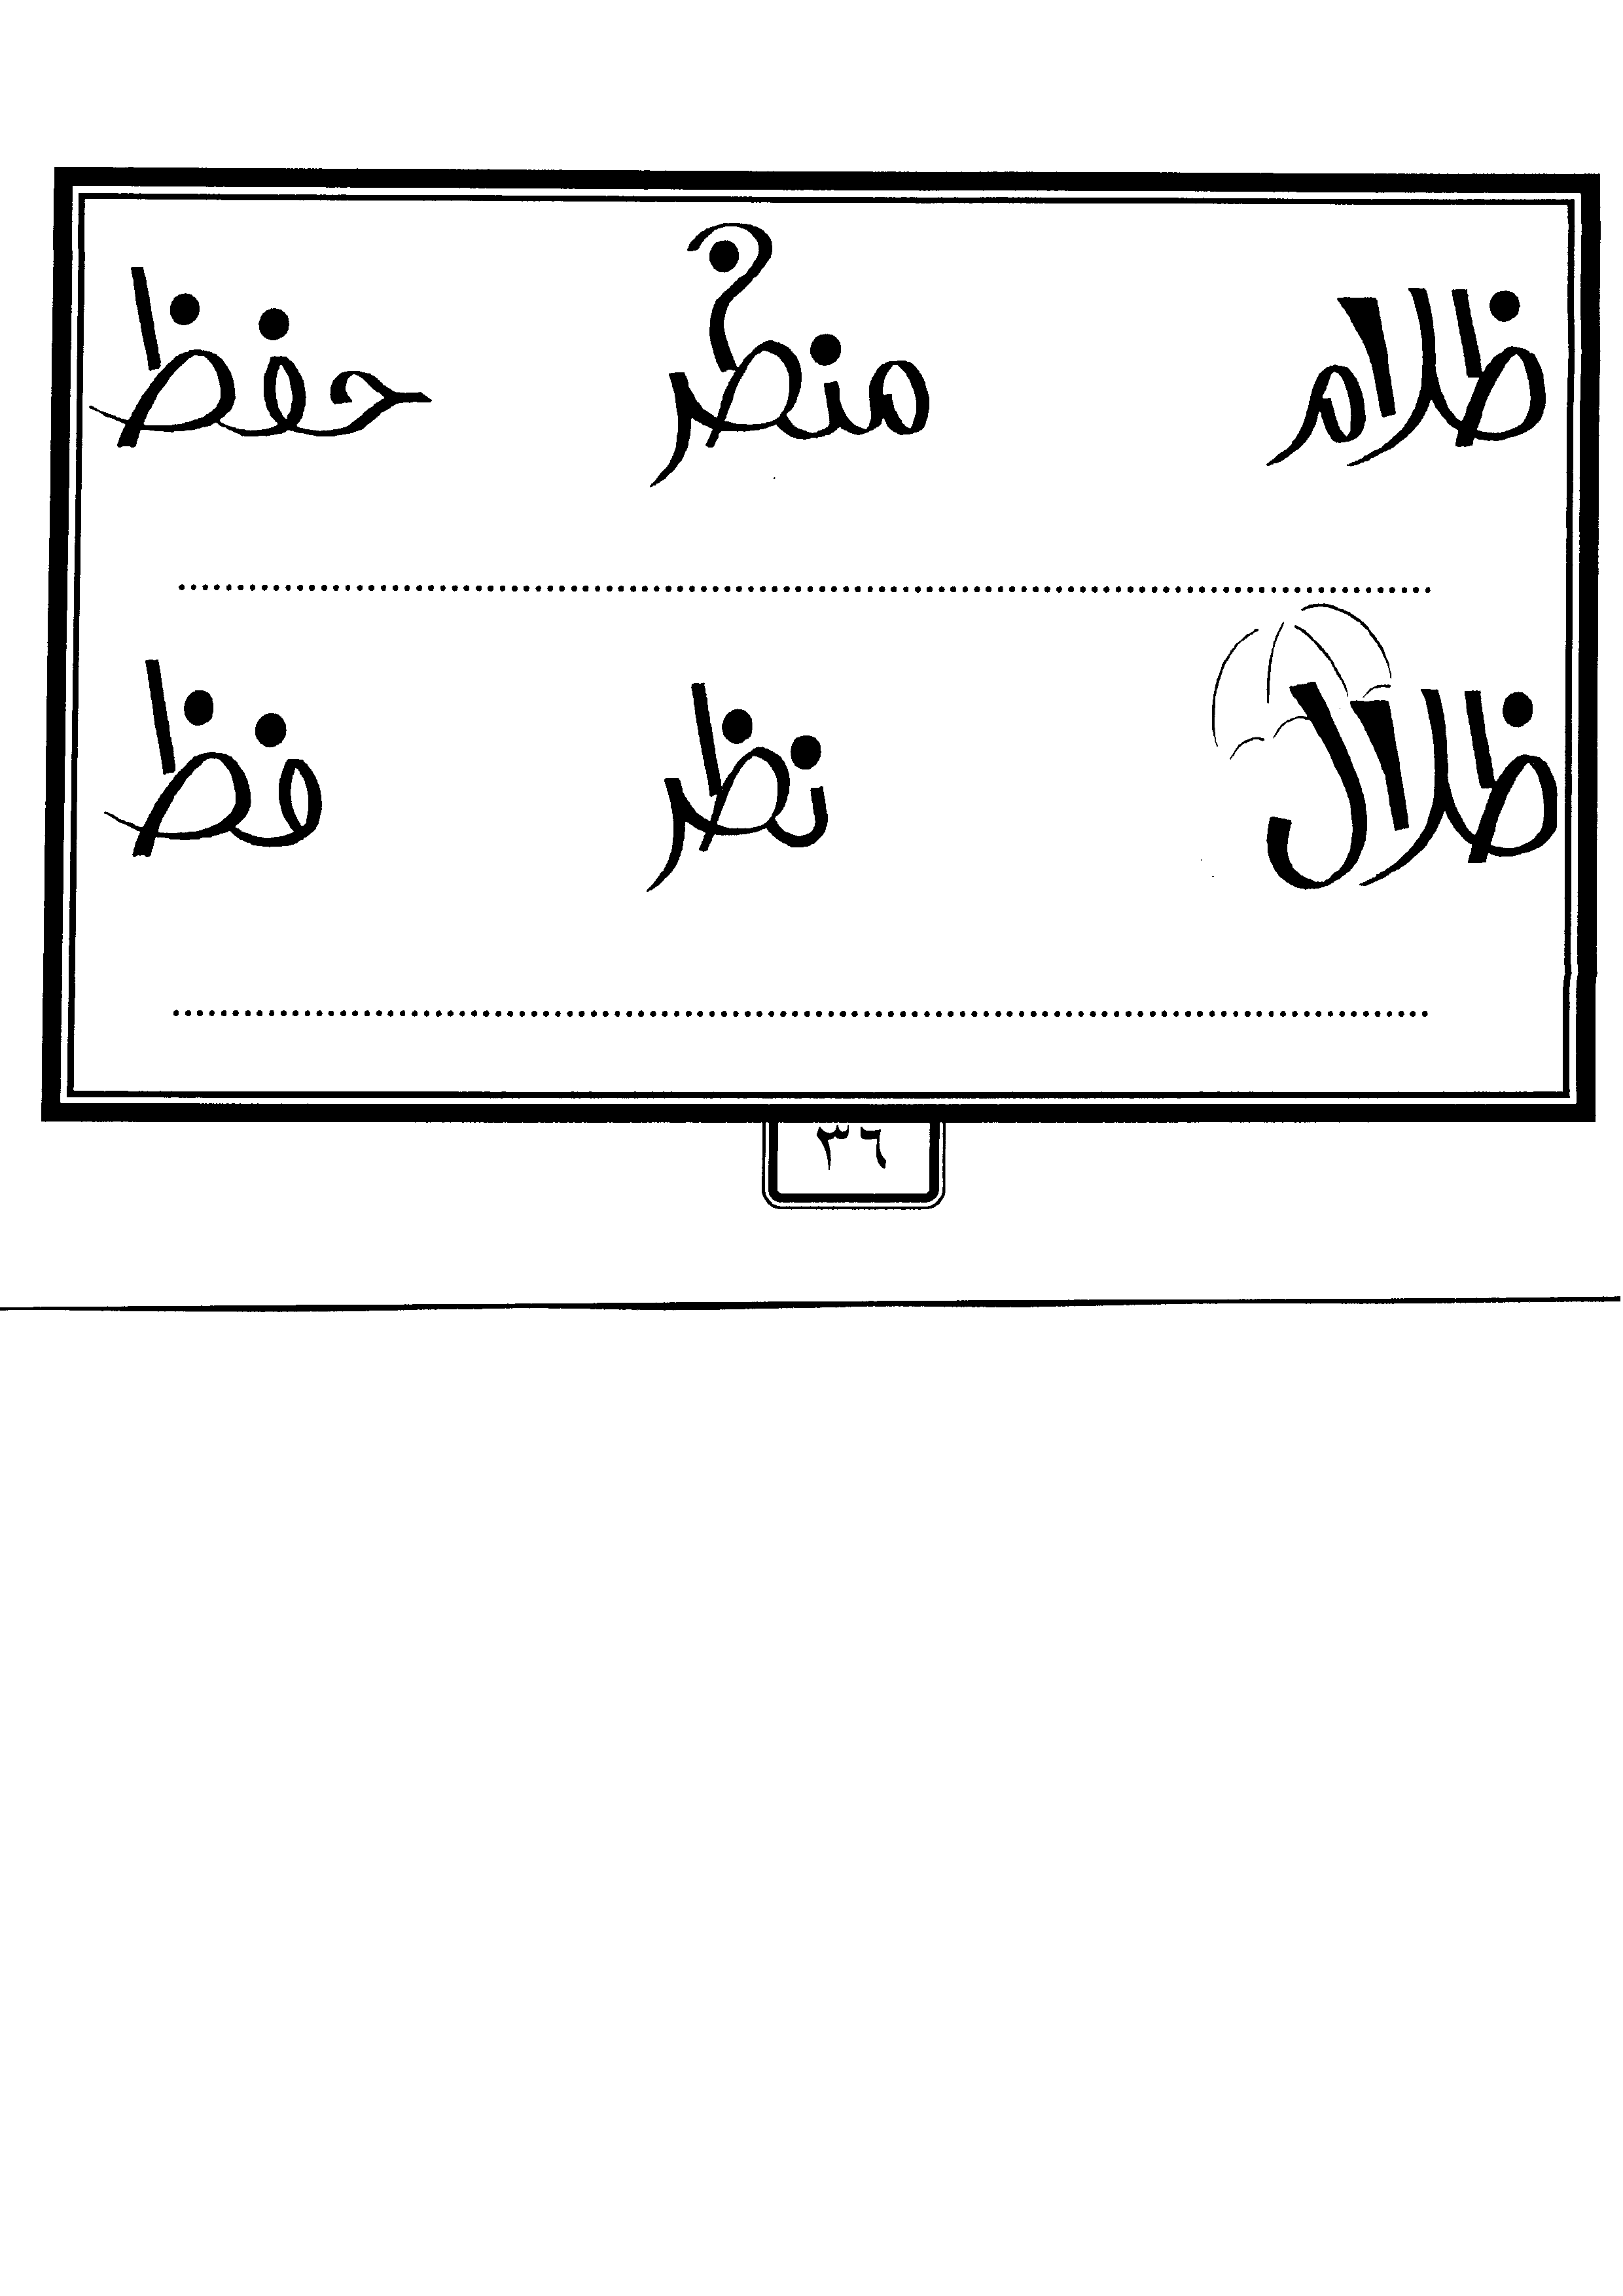 ظلام منظر حفظ
ظلال نظر فظ
٣٦